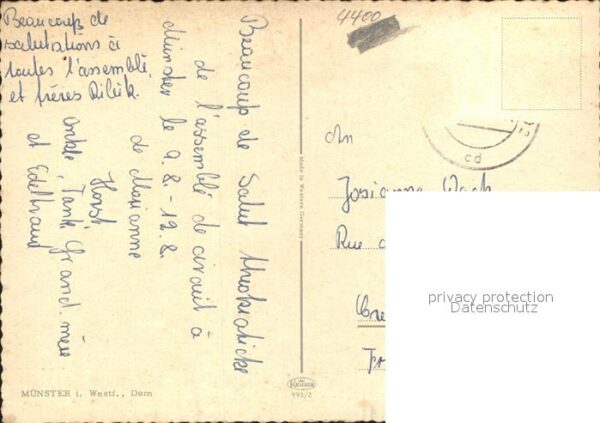 Beaucoup de
salutations à
toutes l'assemblé,
et frères
Beaucoup de Salut theokratické
de l'assemblé de circuit à
Münster le 9.8. - 12.8.
de Marianne
Horst
onkle, Tante, Grand-mère
et Edeltraud
4400
cd
An
Josianne
Rue
Fr
Made in Western Germany
MÜNSTER i. Westf., Dom
Krüger
993/2
privacy protection
Datenschutz